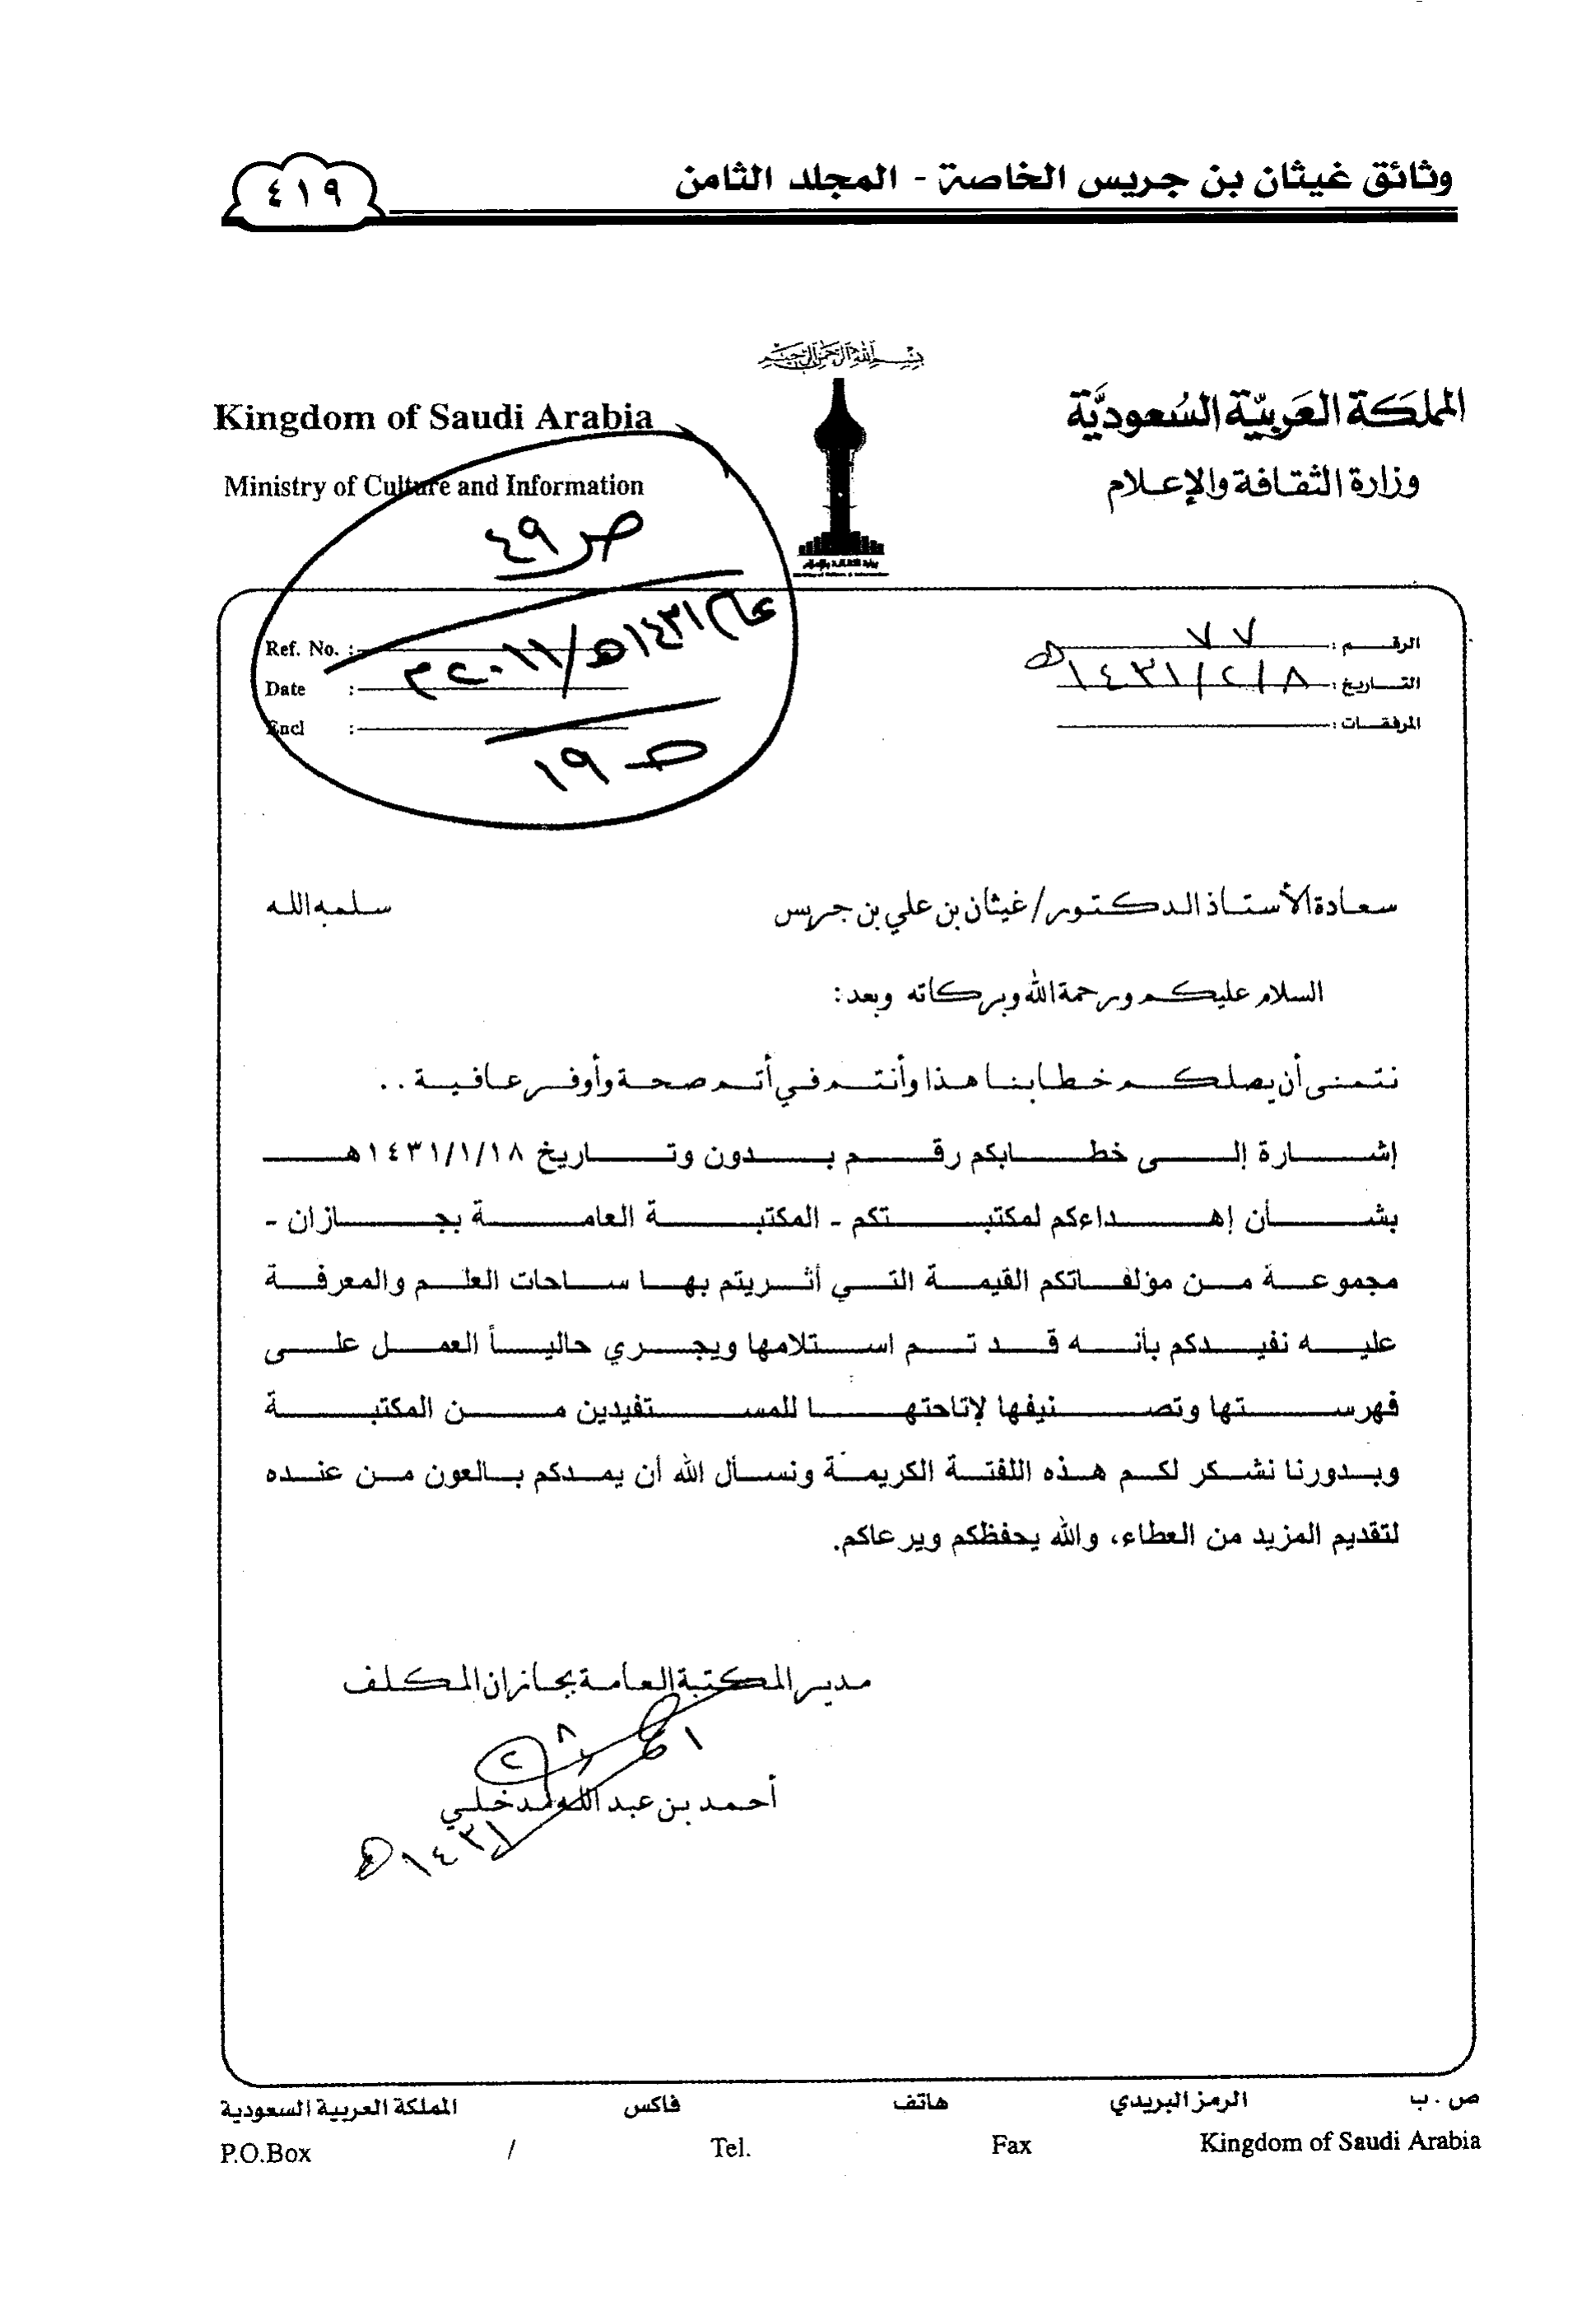 وثائق غيثان بن جريس الخاصة - المجلد الثامن
٤١٩
بسم الله الرحمن الرحيم
المملكة العربية السعودية
وزارة الثقافة والإعلام
Kingdom of Saudi Arabia
Ministry of Culture and Information
وزارة الثقافة والإعلام
Ministry of Culture & Information
ص ٤٩
عام ١٤٣١هـ/٢٠١١م
ص ١٩
الرقم : ٧٧
التاريخ : ١٤٣١/٢/٨هـ
المرفقات :
Ref. No. :
Date :
Encl :
سعادة الأستاذ الدكتور/ غيثان بن علي بن جريس سلمه الله
السلام عليكم ورحمة الله وبركاته وبعد:
نتمنى أن يصلكم خطابنا هذا وأنتم في أتم صحة وأوفر عافية ..
إشارة إلى خطابكم رقم بدون وتاريخ ١٤٣١/١/١٨هـ
بشأن إهداءكم لمكتبتكم - المكتبة العامة بجازان -
مجموعة من مؤلفاتكم القيمة التي أثريتم بها ساحات العلم والمعرفة
عليه نفيدكم بأنه قد تم استلامها ويجري حالياً العمل على
فهرستها وتصنيفها لإتاحتها للمستفيدين من المكتبة
وبدورنا نشكر لكم هذه اللفتة الكريمة ونسأل الله أن يمدكم بالعون من عنده
لتقديم المزيد من العطاء، والله يحفظكم ويرعاكم.
مدير المكتبة العامة بجازان المكلف
أحمد بن عبد الله مدخلي
١٤٣١هـ
ص.ب الرمز البريدي هاتف فاكس المملكة العربية السعودية
P.O.Box / Tel. Fax Kingdom of Saudi Arabia